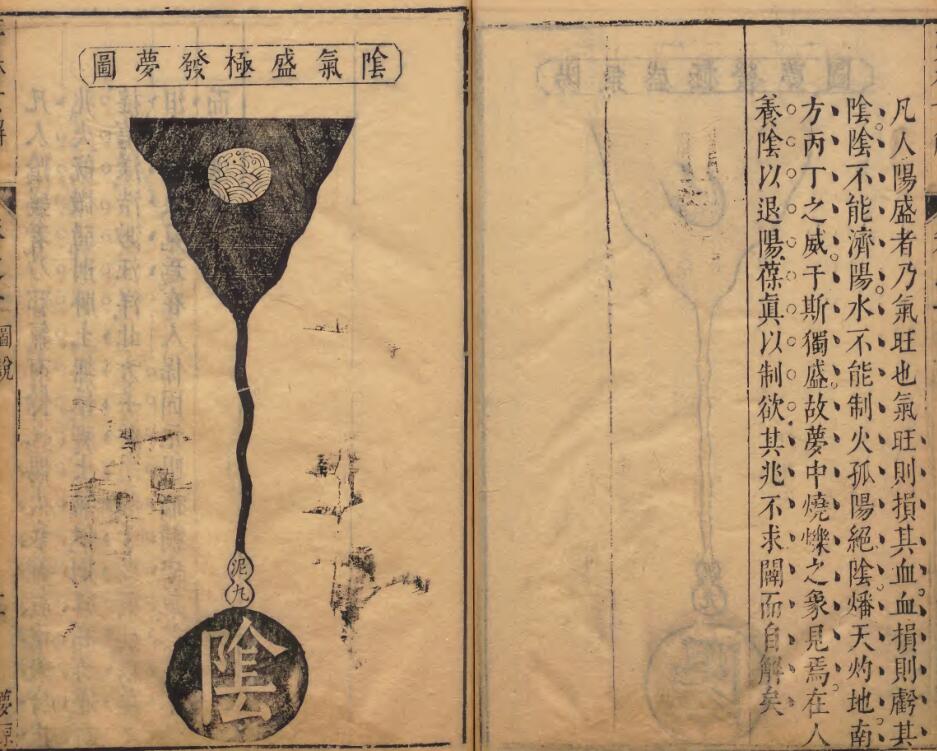 凡人陽盛者乃氣旺也氣旺則損其血血損則虧其
隂隂不能濟陽水不能制火孤陽絕隂燔天灼地南
方丙丁之威于斯獨盛故夢中燒爍之象見焉在人
養隂以退陽葆眞以制欲其兆不求闢而自解矣
隂氣盛極發夢圖
泥丸
隂
圖說